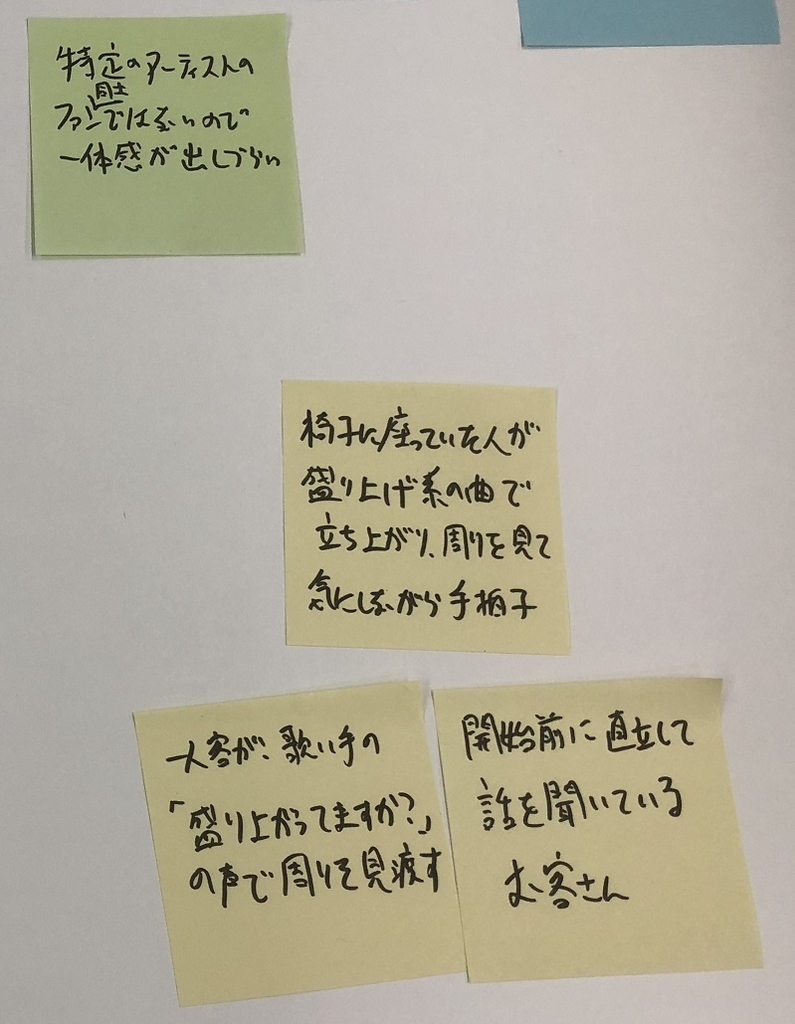 特定のアーティストの
ファン同士ではないので
一体感が出しづらい
椅子に座っていた人が
盛り上げ系の曲で
立ち上がり、周りを見て
気にしながら手拍子
一人客が、歌い手の
「盛り上がってますか?」
の声で周りを見渡す
開始前に直立して
話を聞いている
お客さん